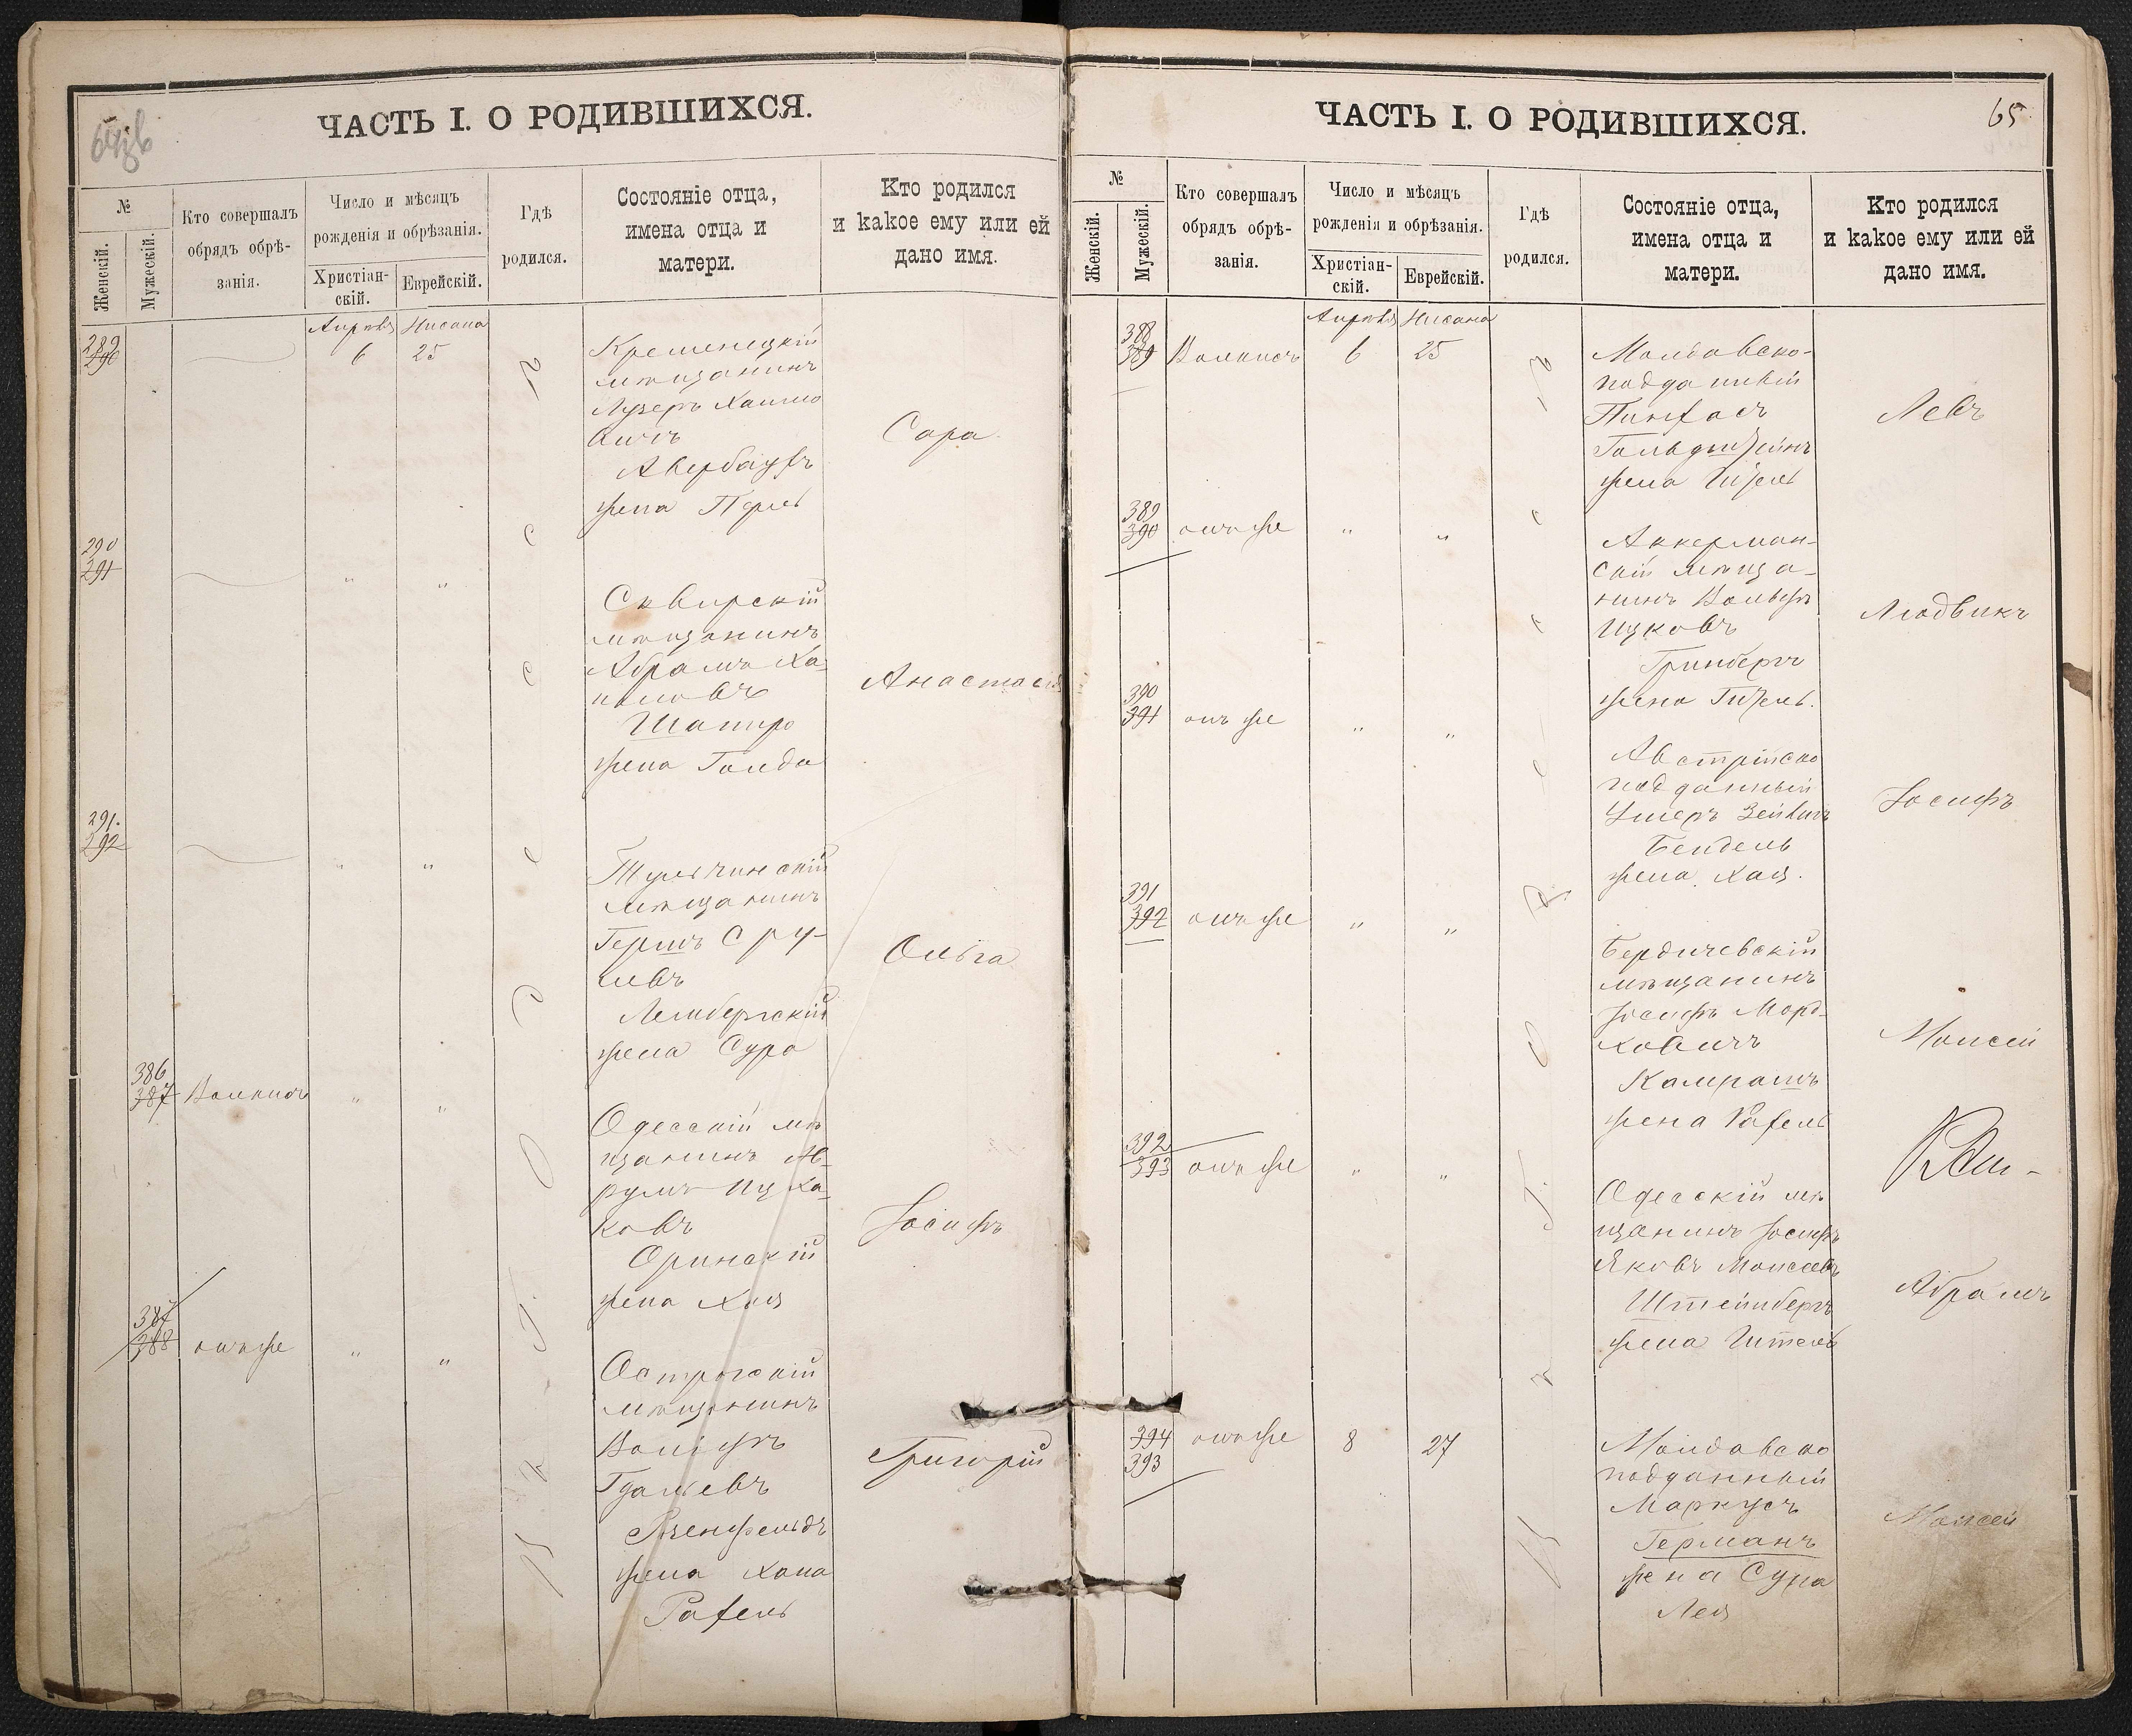 ЧАСТЬ I. О РОДИВШИХСЯ.
№
Женскій.
Мужескій.
Кто совершалъ
обрядъ обрѣ-
занія.
Число и мѣсяцъ
рожденія и обрѣзанія.
Христіан-
скій.
Еврейскій.
Гдѣ
родился.
Состояніе отца,
имена отца и
матери.
Кто родился
и какое ему или ей
дано имя.
Апрѣля Нисана
289
290
6 25
Кременецкій
мѣщанинъ
Лузеръ Хаимо
вичъ
Авербухъ
жена Перль
Сара
290
291
" "
Сквирскій
мѣщанинъ
Абрамъ Ха-
Шапиро
жена Голда
Анастасія
291.
292
" "
Тульчинскій
мѣщанинъ
Гершъ Сру-
левъ
Лембергскій
жена Сура
Ольга
386
387
" "
Одесскій мѣ
щанинъ
ковъ
Оринскій
жена Хая
Іосифъ
387
388
онъ же " "
Острогскій
мѣщанинъ
Вольфъ
Гдальевъ
Розенфельдъ
жена Хана
Рахель
Григорій
ЧАСТЬ I. О РОДИВШИХСЯ.
65
№
Женскій.
Мужескій.
Кто совершалъ
обрядъ обрѣ-
занія.
Число и мѣсяцъ
рожденія и обрѣзанія.
Христіан-
скій.
Еврейскій.
Гдѣ
родился.
Состояніе отца,
имена отца и
матери.
Кто родился
и какое ему или ей
дано имя.
Апрѣля Нисана
388
389
6 25
Молдавско-
подданный
Пинхасъ
Гольдштейнъ
жена
Левъ
389
390
онъ же " "
Аккерман-
скій мѣща-
нинъ Вольфъ
Ицковъ
Гринбергъ
жена
Людвикъ
390
391
онъ же " "
Австрійско
подданный
Бендель
жена Хая.
Іосифъ
391
392
онъ же " "
Бердичевскій
мѣщанинъ
Іосифъ Морд-
ковичъ
жена Рахель
Моисей
392
393
онъ же " "
Одесскій мѣ
щанинъ Іосифъ
Яковъ Моисеевъ
Штейнбергъ
жена
Абрамъ
394
393
онъ же 8 27
Молдавско
подданный
Маркусъ
Германъ
жена Сура
Лея
Моисей